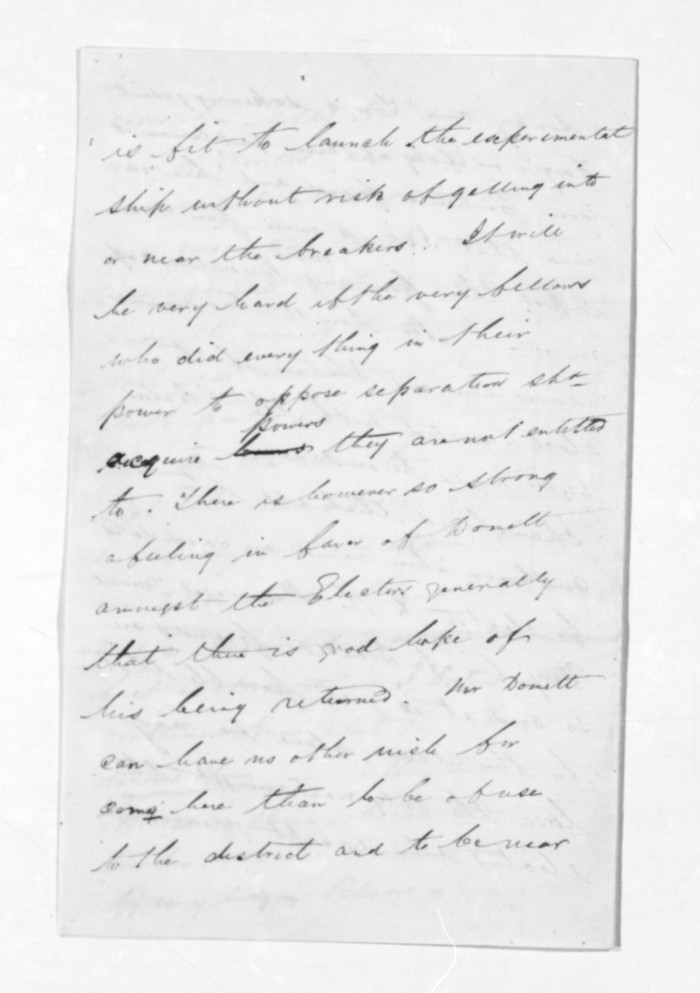 is fit to launch the experimental
ship without risk of getting into
or near the breakers. It will
be very hard if the very fellows
who did every thing in their
power to oppose separation sho-
powers
acquire they are not entitled
to. There is however so strong
a feeling in favor of Domett
amongst the Electors generally
that there is good hope of
his being returned. Mr Domett
can have no other wish for
comg here than to be of use
to the district and to be near